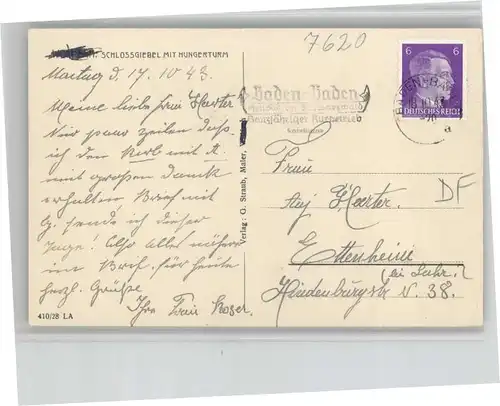 7620
SCHLOSSGIEBEL MIT HUNGERTURM
Montag d. 17. 10 43.
Meine liebe Frau Haerter
Nur paar zeilen daß
ich den Korb mit
mit großem dank
erhalten Brief mit
sende ich dieser
Tage! Also alles nähere
im Brief, für heute
herzl. Grüße
Ihre Frau Moser.
410/28 LA
Verlag: G. Straub, Maler,
Baden-Baden
Ganzjähriger Kurbetrieb
6 6
DEUTSCHES REICH
a
Frau
Haerter
DF
Ettenheim
(bei Lahr.)
Hindenburgstr N. 38.